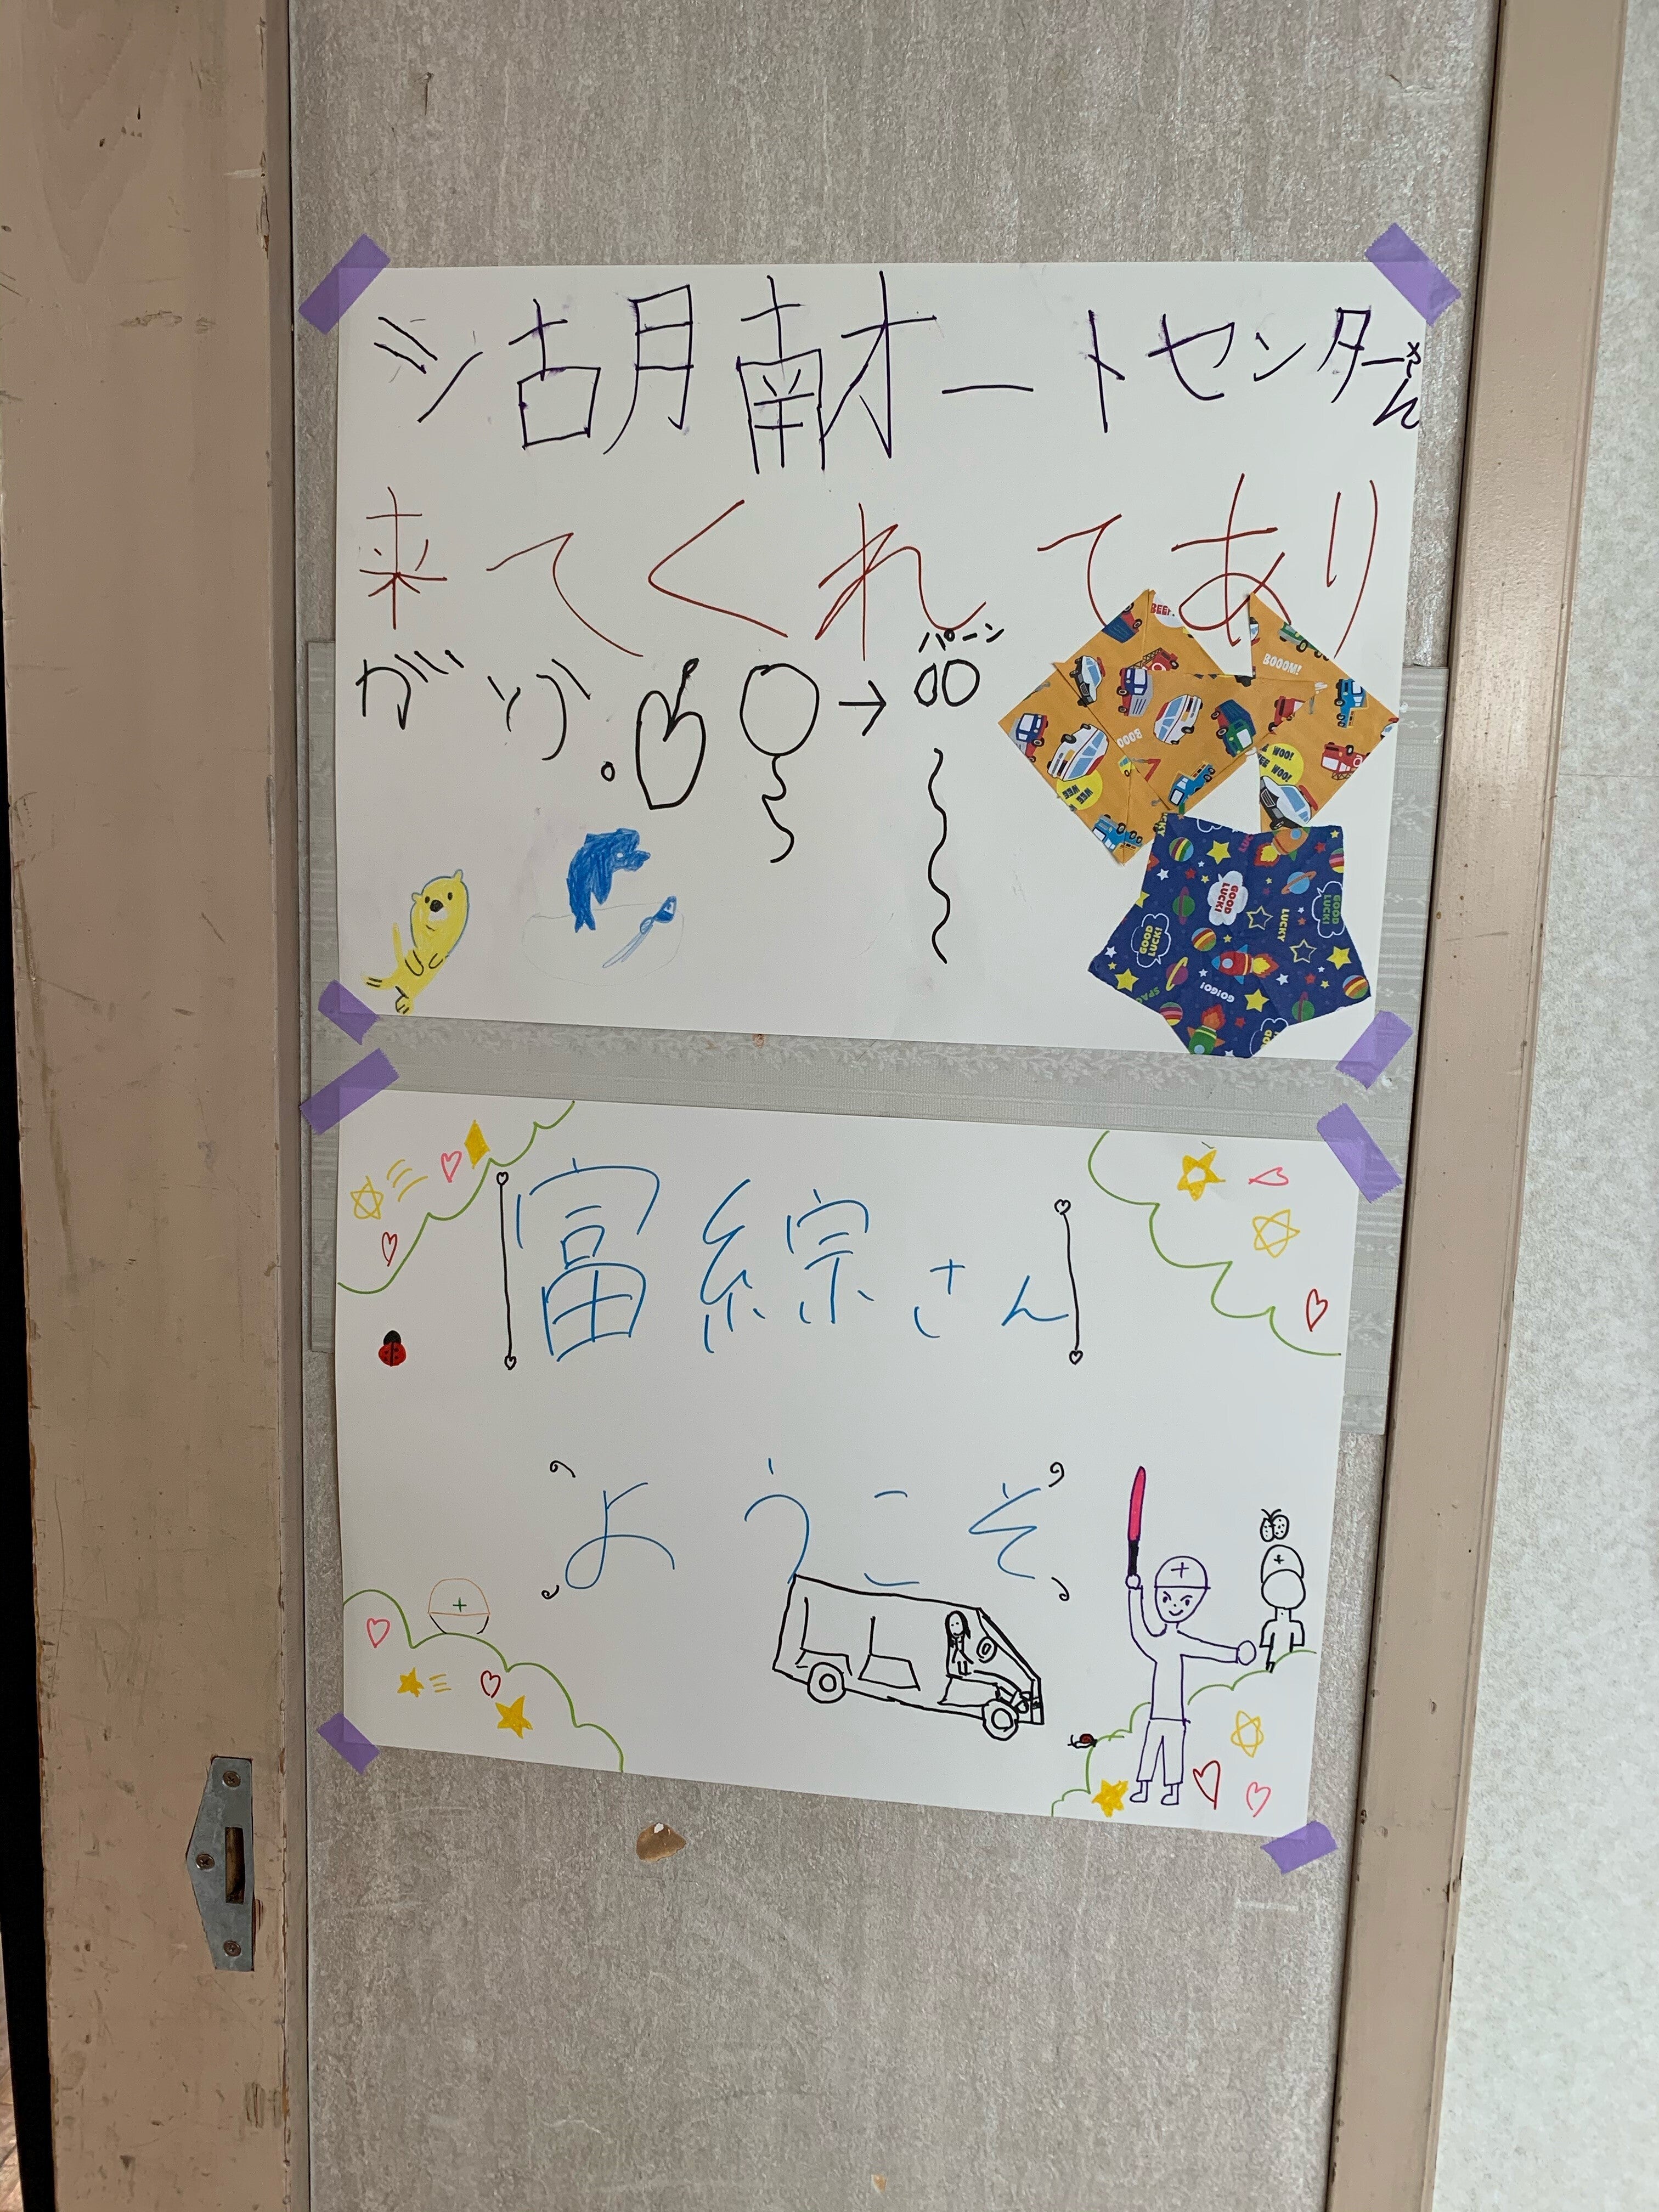 湖南オートセンターさん
来てくれてあり
がとう。
パーン
BEEP
BOOOM!
BOOO
WEE WOO!
WEE WOO!
GOOD LUCK!
GOOD LUCK!
GOOD LUCK!
LUCKY
GO!GO!
SPAC
富綜さん
ようこそ